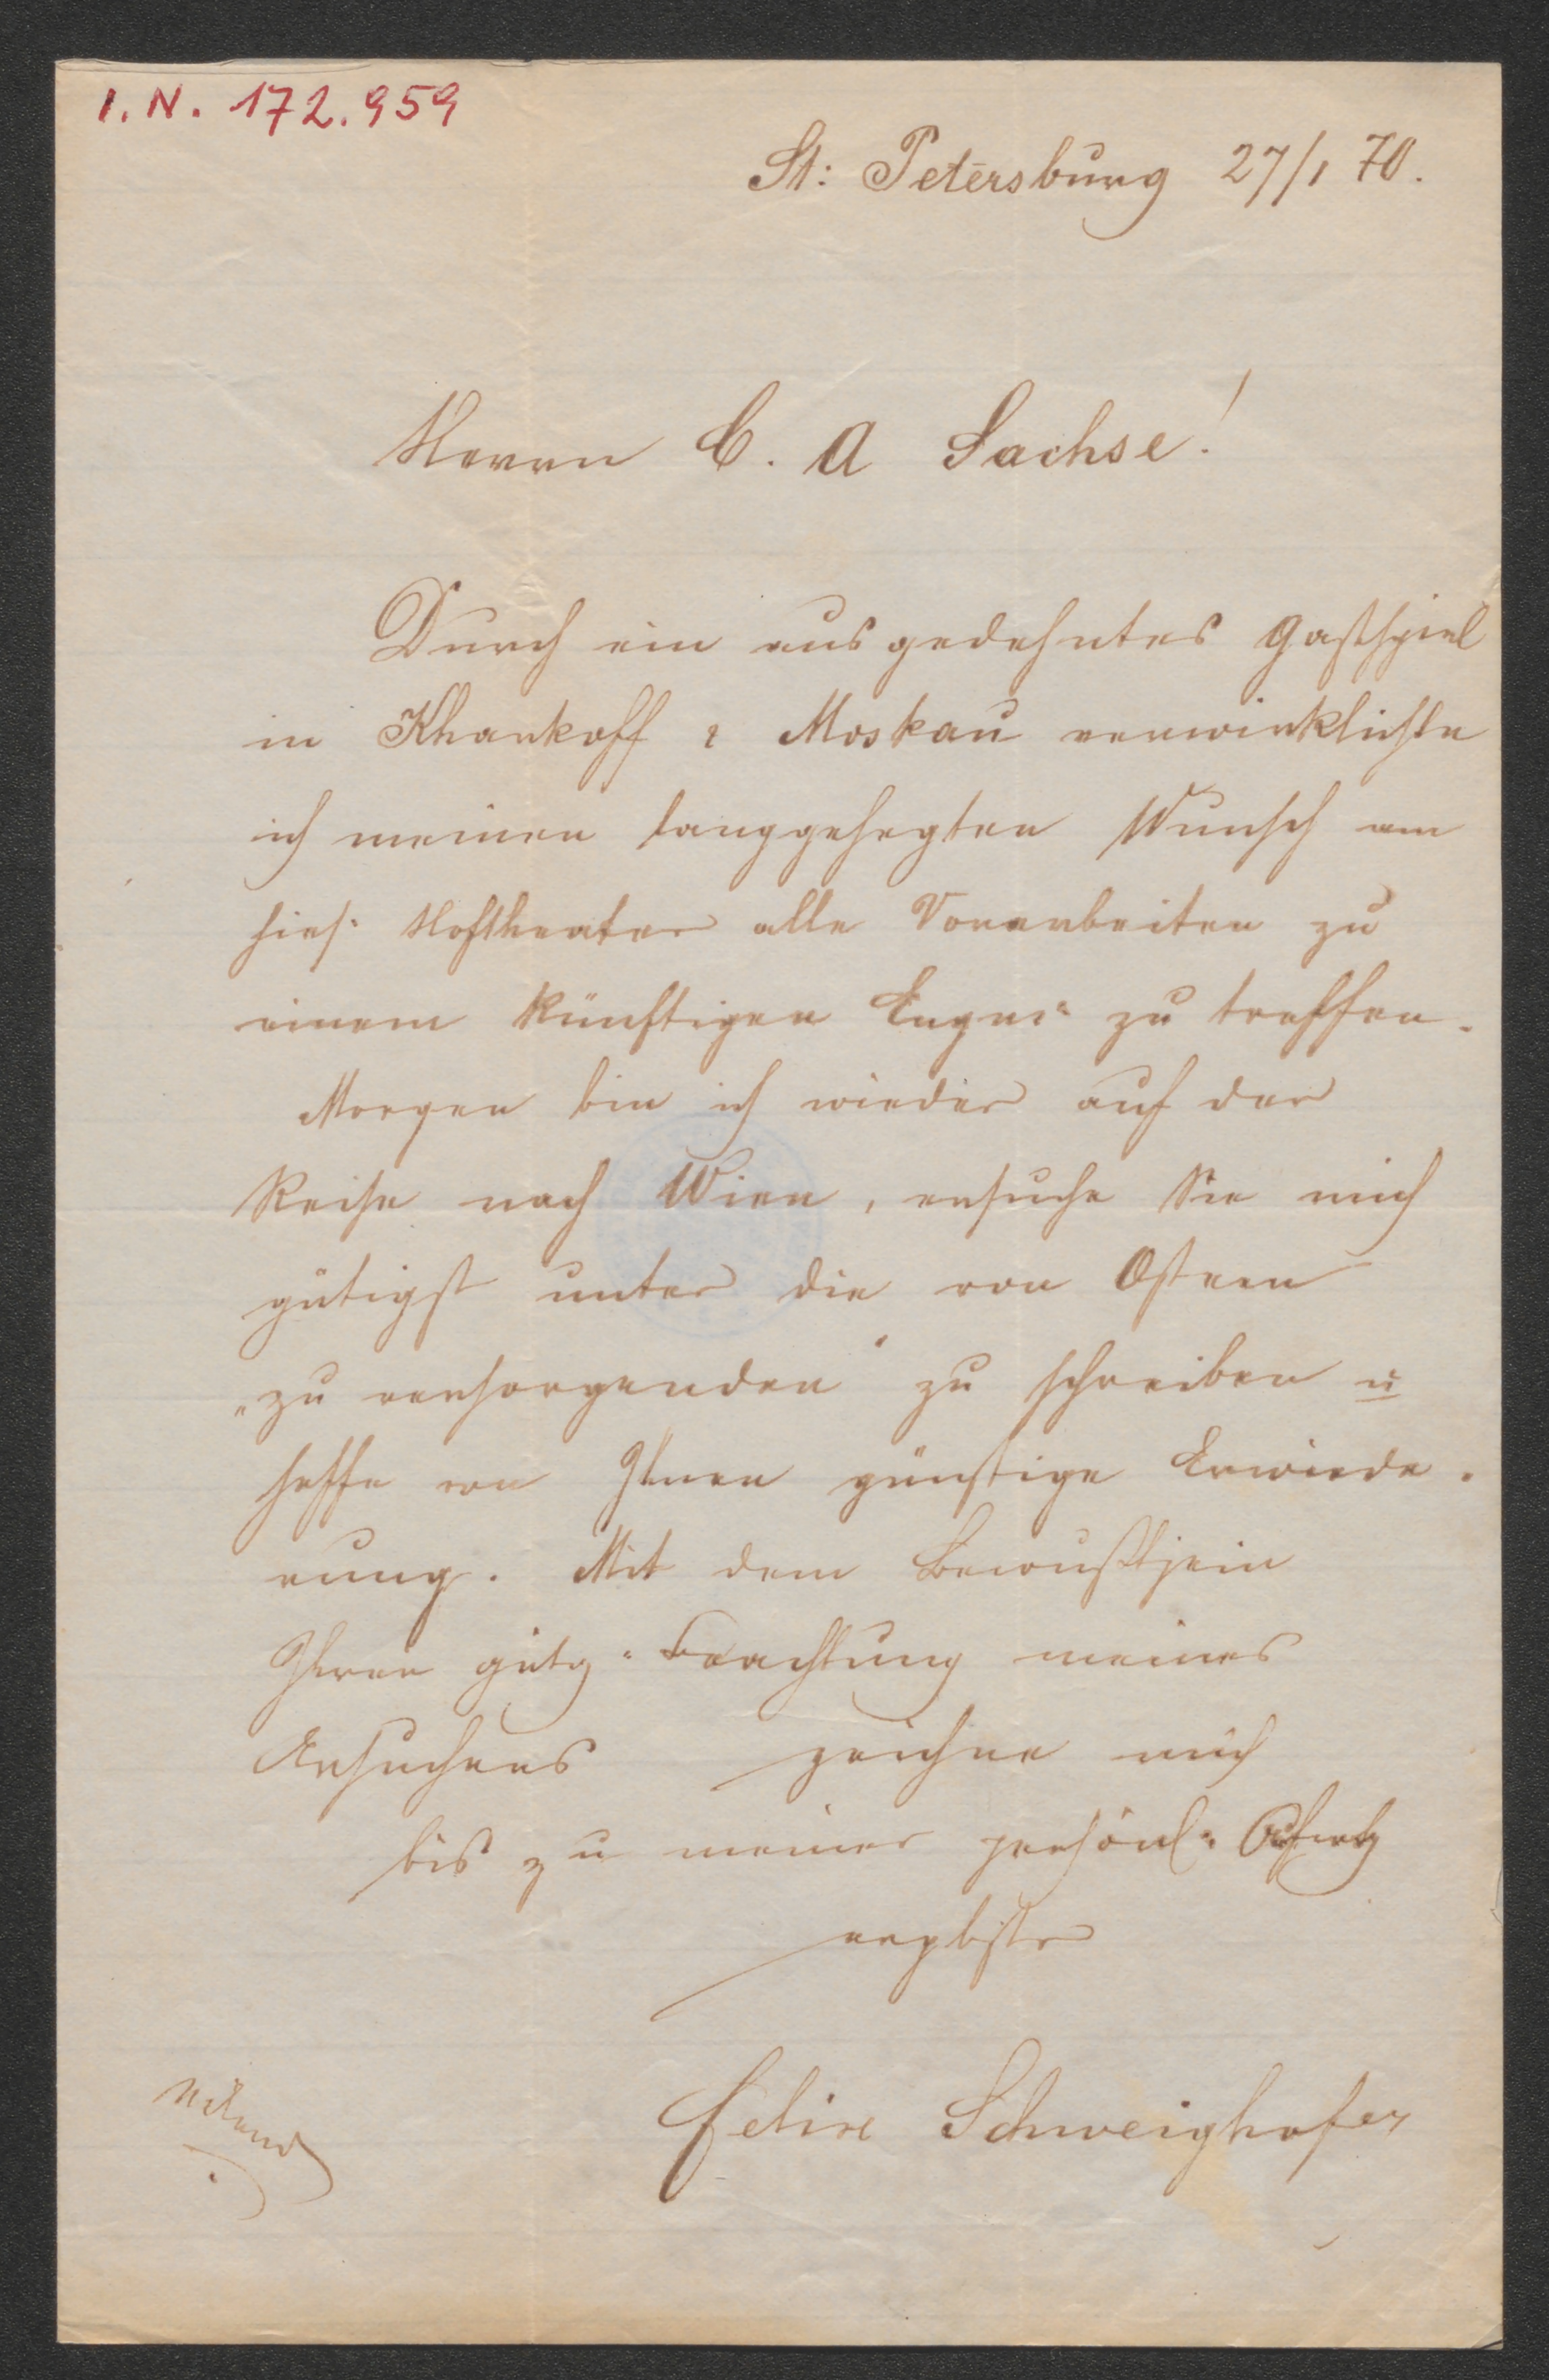 I. N. 172.959
St: Petersburg 27/1 70.
Herrn C. A Sachse!
Durch ein ausgedehntes Gastspiel
in Kharkoff & Moskau verwirklichte
ich meinen langgehegten Wunsch am
hies: Hoftheater alle Vorarbeiten zu
einem künftigen Engm: zu treffen.
Morgen bin ich wieder auf der
Reise nach Wien, ersuche Sie mich
gütigst unter die von Ostern
„zu versorgenden" zu schreiben u
hoffe von Ihnen günstige Erwiede-
rung. Mit dem Bewußtsein
Ihrer gütg: Beachtung meines
Ansuchens zeichne mich
bis zu meiner persönl:
ergbster
Felix Schweighofer